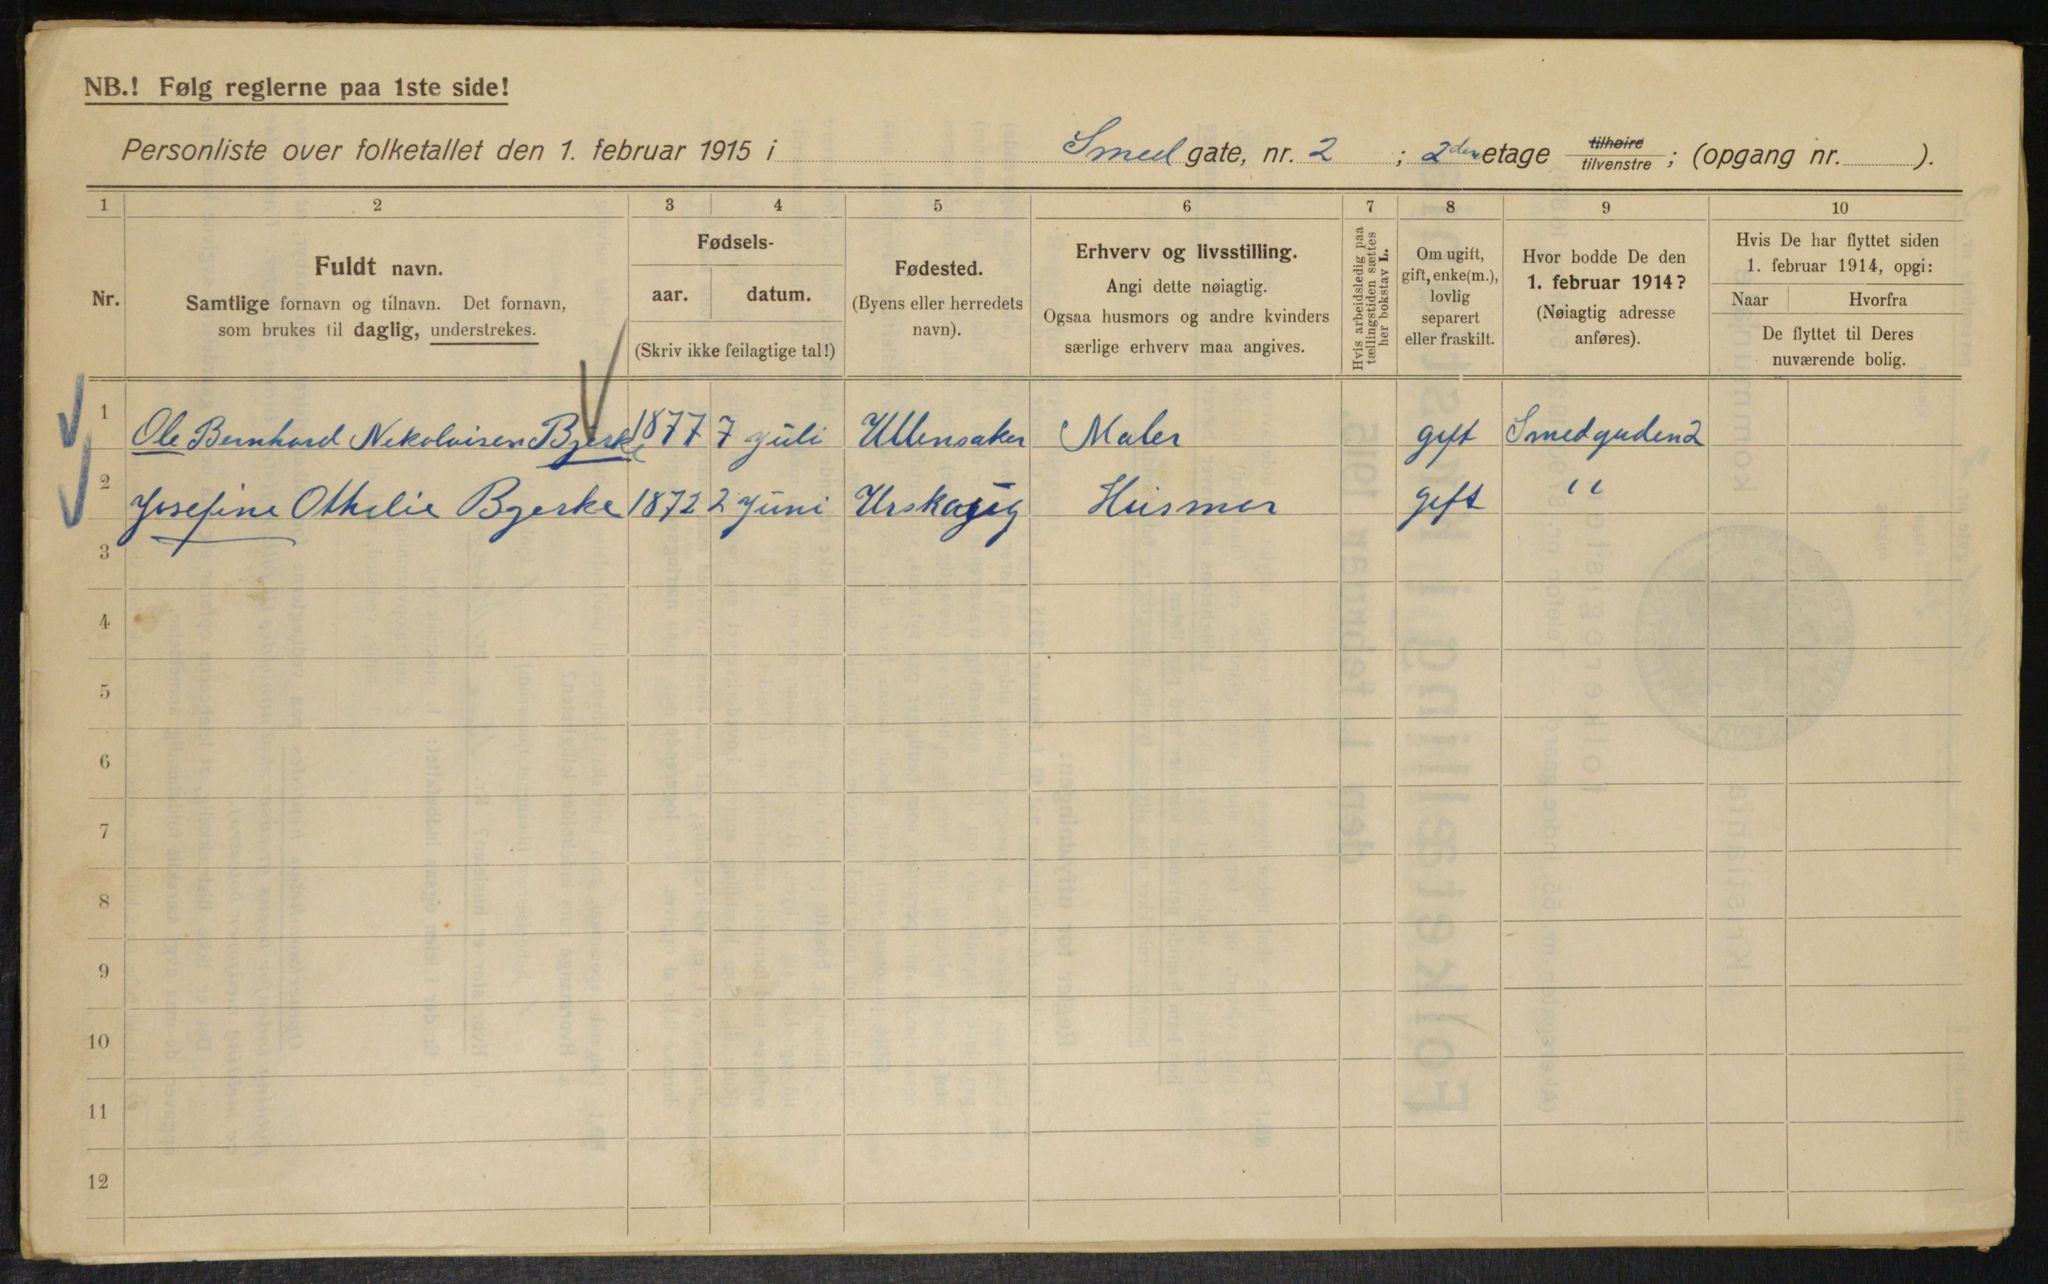 NB.! Følg reglerne paa 1ste side!
Personliste over folketallet den 1. februar 1915 i Smed gate, nr. 2 ; 2den etage tilhøire tilvenstre ; (opgang nr. ).
1 2 3 4 5 6 7 8 9 10
Nr.
Fuldt navn.
Samtlige fornavn og tilnavn. Det fornavn,
som brukes til daglig, understrekes.
Fødsels-
aar. datum.
(Skriv ikke feilagtige tal!)
Fødested.
(Byens eller herredets
navn).
Erhverv og livsstilling.
Angi dette nøiagtig.
Ogsaa husmors og andre kvinders
særlige erhverv maa angives.
Hvis arbeidsledig paa
tællingstiden sættes
her bokstav L.
Om ugift,
gift, enke(m.),
lovlig
separert
eller fraskilt.
Hvor bodde De den
1. februar 1914?
(Nøiagtig adresse
anføres).
Hvis De har flyttet siden
1. februar 1914, opgi:
Naar Hvorfra
De flyttet til Deres
nuværende bolig.
1 Ole Bernhard Nekolaisen Bjerke 1877 7 juli Ullensaker Maler gift Smedgaden 2
2 Josefine Othelie Bjerke 1872 2 juni Urskoug Husmor gift "
3
4
5
6
7
8
9
10
11
12